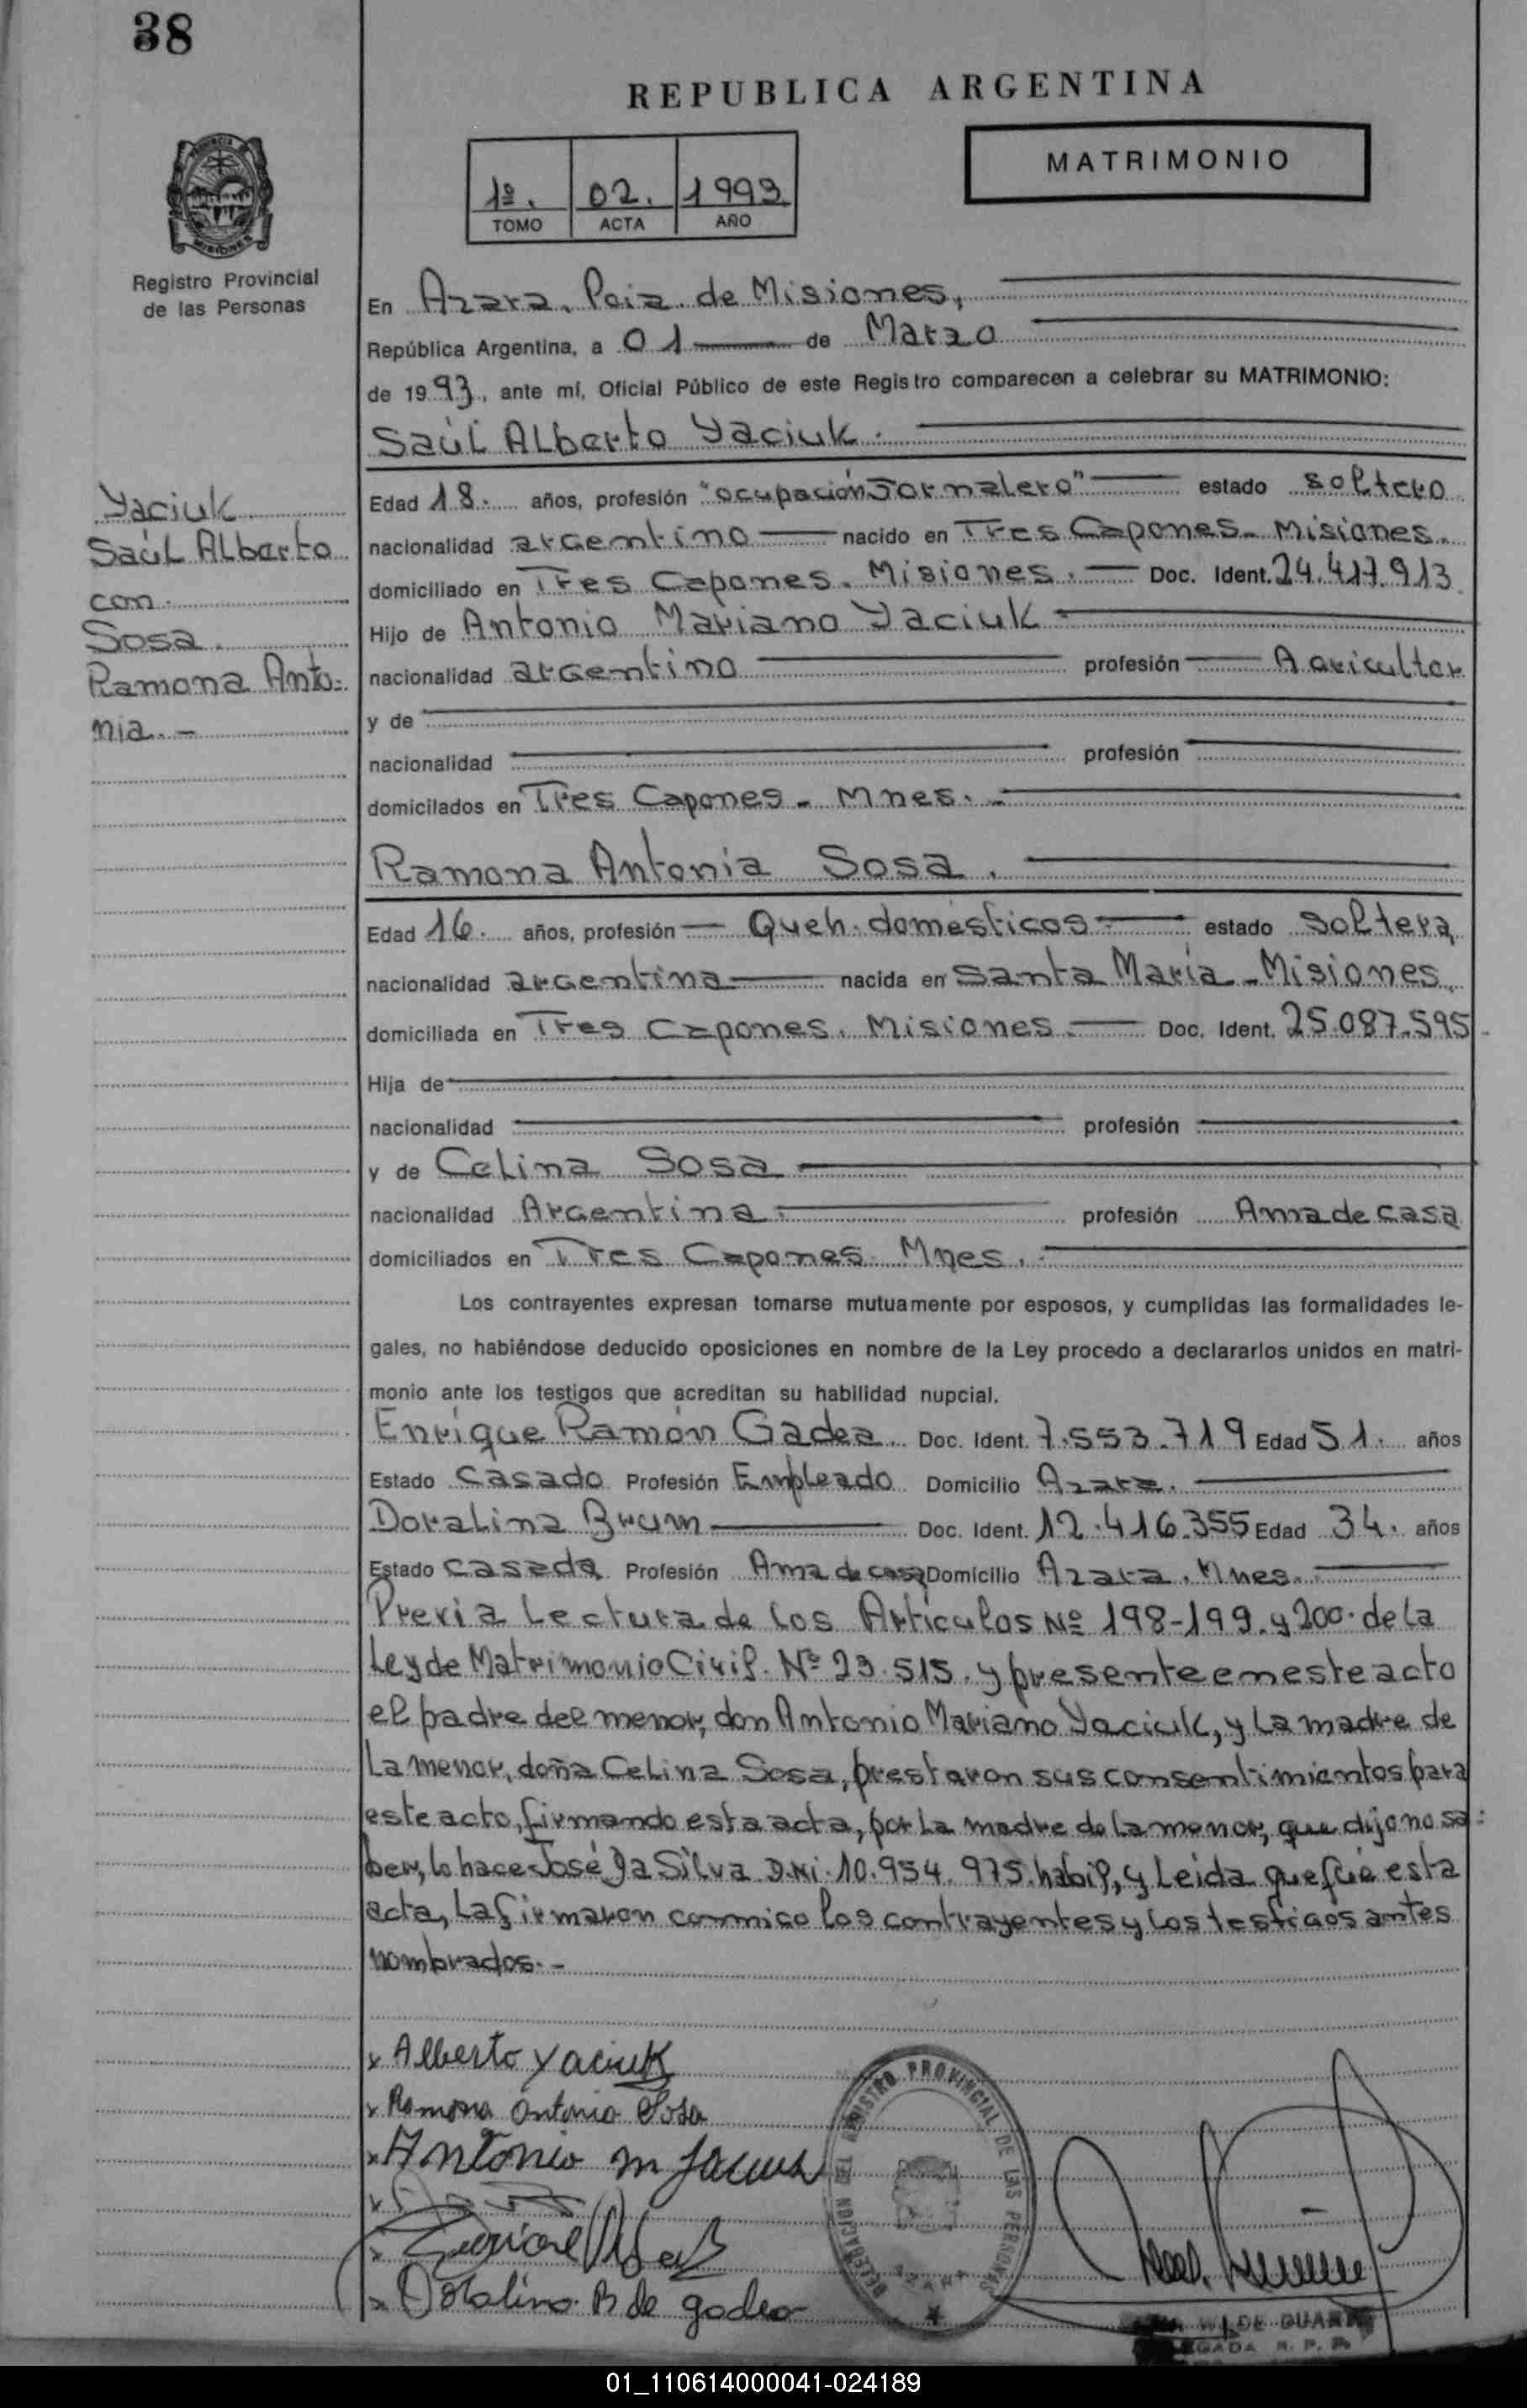 38
REPUBLICA ARGENTINA
MATRIMONIO
1º. 02. 1993
TOMO ACTA AÑO
PROVINCIA DE MISIONES
Registro Provincial
de las Personas
En Azara. Pcia. de Misiones,
República Argentina, a 01 de Marzo
de 1993, ante mí, Oficial Público de este Registro comparecen a celebrar su MATRIMONIO:
Saúl Alberto Yaciuk.
Yaciuk
Saúl Alberto
con.
Sosa.
Ramona Anto-
nia. -
Edad 18. años, profesión "ocupación Jornalero" estado soltero
nacionalidad argentino nacido en Tres Capones. Misiones.
domiciliado en Tres Capones. Misiones. Doc. Ident. 24.417.913
Hijo de Antonio Mariano Yaciuk
nacionalidad argentino profesión Agricultor
y de
nacionalidad profesión
domicilados en Tres Capones - Mnes.
Ramona Antonia Sosa.
Edad 16. años, profesión Queh. domésticos estado soltera
nacionalidad argentina nacida en Santa María - Misiones
domiciliada en Tres Capones. Misiones. Doc. Ident. 25.087.595
Hija de
nacionalidad profesión
y de Celina Sosa
nacionalidad Argentina profesión Ama de casa
domiciliados en Tres Capones. Mnes.
Los contrayentes expresan tomarse mutuamente por esposos, y cumplidas las formalidades le-
gales, no habiéndose deducido oposiciones en nombre de la Ley procedo a declararlos unidos en matri-
monio ante los testigos que acreditan su habilidad nupcial.
Enrique Ramón Gadea Doc. Ident. 7.553.719 Edad 51. años
Estado Casado Profesión Empleado Domicilio Azara.
Doralina Brum Doc. Ident. 12.416.355 Edad 34. años
Estado casada Profesión Ama de casa Domicilio Azara. Mnes.
Previa Lectura de los Artículos Nº 198-199. y 200. de la
Ley de Matrimonio Civil. Nº 23.515. y presente en este acto
el padre del menor, don Antonio Mariano Yaciuk, y la madre de
la menor, doña Celina Sosa, prestaron sus consentimientos para
este acto, firmando esta acta, por la madre de la menor, que dijo no sa:
ber, lo hace José Da Silva D.Ni. 10.954.975. habil, y Leida que fue esta
acta, la firmaron conmigo los contrayentes y los testigos antes
nombrados. -
x Alberto Yaciuk
x Ramona Antonia Sosa
x Antonio M Yaciuk
x
x
x Doralina B de gadea
DELEGACION DEL REGISTRO PROVINCIAL DE LAS PERSONAS
AZARA
DE DUARTE
R. P. P.
01_110614000041-024189